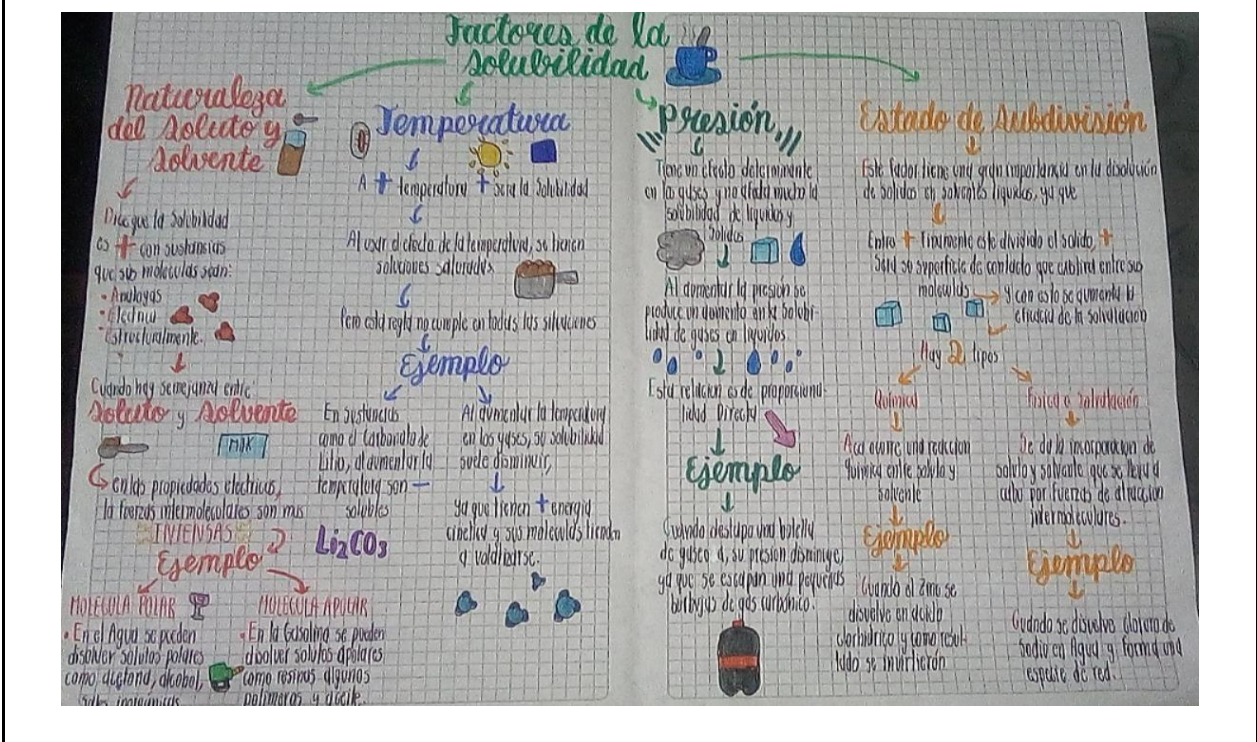 Factores de la
solubilidad
Naturaleza
del soluto y
solvente
Dice que la solubilidad
es + con sustancias
que sus moleculas sean:
• Analogas
• Electrica
• Estructuralmente.
Cuando hay semejanza entre:
Soluto y Solvente
MILK
en las propiedades electricas,
la fuerzas intermoleculares son mas
INTENSAS
Ejemplo
MOLECULA POLAR
• En el Agua se pueden
disolver solutos polares
como acetona, alcohol,
sales inorganicas
MOLECULA APOLAR
• En la Gasolina se pueden
disolver solutos apolares
como resinas algunos
polimeros y aceite.
Temperatura
A + temperatura + sera la Solubilidad
Al usar el efecto de la temperatura, se tienen
soluciones saturadas
Pero esta regla no cumple en todas las situaciones
Ejemplo
En sustancias
como el Carbonato de
Litio, al aumentar la
temperatura son —
solubles
Li2CO3
Al aumentar la temperatura
en los gases, su solubilidad
suele disminuir,
ya que tienen + energia
cinetica y sus moleculas tienden
a volatilizarse.
Presión
Tiene un efecto determinante
en los gases y no afecta mucho la
solubilidad de liquidos y
Solidos
Al aumentar la presion se
produce un aumento en la Solubi-
lidad de gases en liquidos
Esta relacion es de proporciona-
lidad Directa
Ejemplo
Cuando destapa una botella
de gaseosa, su presion disminuye,
ya que se escapan una pequeñas
burbujas de gas carbónico.
Estado de subdivisión
Este factor tiene una gran importancia en la disolución
de solidos en solventes liquidos, ya que
Entre + finamente este dividido el solido, +
Será su superficie de contacto que existira entre sus
moleculas
y con esto se aumenta la
eficacia de la solvatacion
Hay 2 tipos
Quimica
Aca ocurre una reaccion
Quimica entre soluto y
solvente
Ejemplo
Cuando el Zinc se
disuelve en acido
clorhidrico y como resul-
tado se invirtierón
Fisica o Solvatación
Se da la incorporacion de
soluto y solvente que se lleva a
cabo por fuerzas de atraccion
intermoleculares.
Ejemplo
Cuando se disuelve cloruro de
Sodio en Agua y forma una
especie de red.